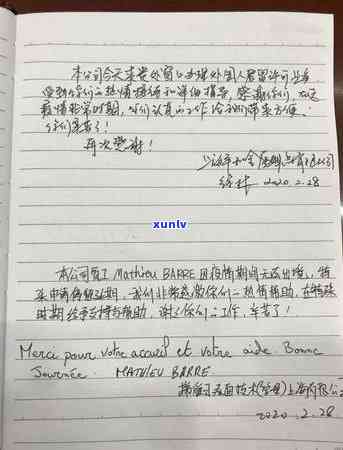 本公司今天来贵处窗口办理外国人居留许可业务
受到你们的热情接待和详细指导,感谢你们,在这
疫情非常时期,你们认真的工作给我们带来方便。
你们辛苦了!
再次感谢!
有限公司
2020.2.28
xunlv
本公司员工 Mathieu BARRE 因疫情期间无法出境,特
来申请停留延期,我们非常感激你们的热情帮助,在特殊
时期给予支持与帮助,谢谢你们的工作,辛苦了!
Merci pour votre accueil et votre aide. Bonne
Journée. MATHIEU BARRE
表面技术(管理)上海有限公司
2020.2.28